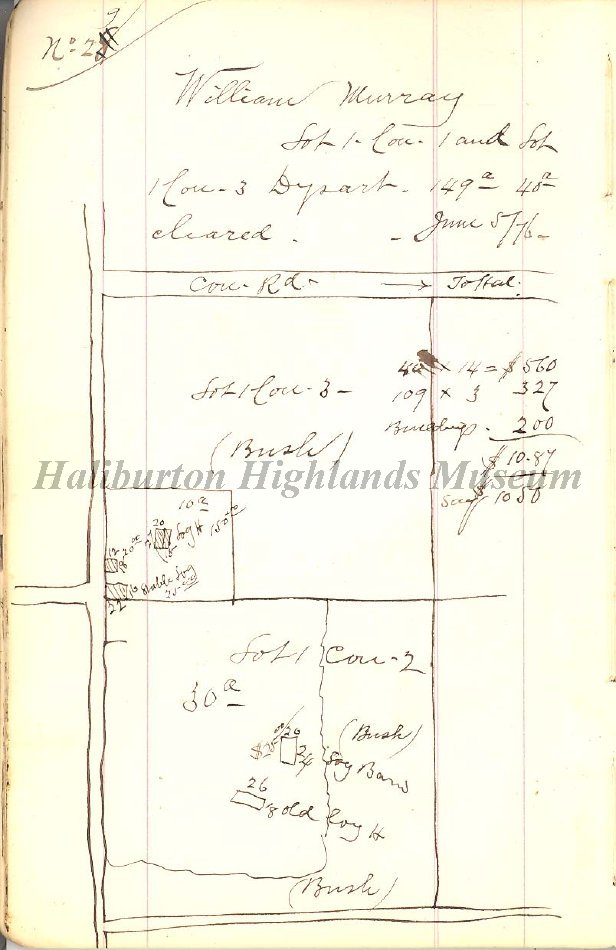 No. 29
William Murray
Lot 1 - Con - 1 and Lot
1 Con - 3 Dysart - 149a 40a
cleared. - June 5/76 -
Con - Rd - → Total.
40 × 14 = $560
Lot 1 Con - 3 -
109 × 3 327
Buildings - 200
(Bush)
$10.87
Haliburton Highlands Museum
Say $1050
10a
20
Log H 150.00
18
12
20.00
18
Stable Log
25.00
22
Lot 1 Con - 2
30a
(Bush)
20
$25.00
24 Log Barn
26
18 old log H
(Bush)